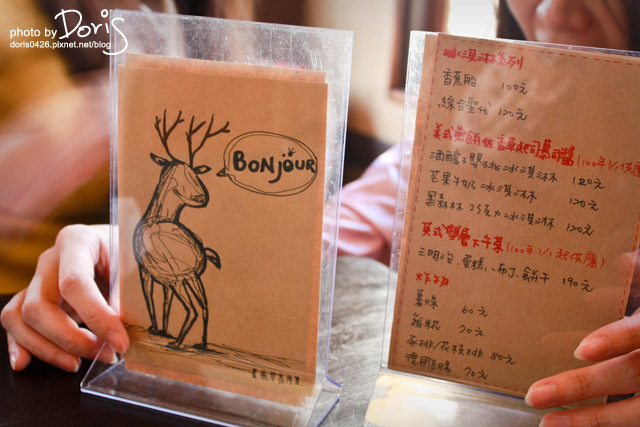 photo by Doris
doris0426.pixnet.net/blog
BONJOUR
冰淇淋系列
香蕉船 100元
綜合聖代 120元
美式鬆餅佐香草起司慕司醬(100年1/1供應
酒釀櫻桃冰淇淋 120元
芒果牛奶冰淇淋 120元
黑森林巧克力冰淇淋 120元
英式雙層下午茶(100年1/1起供應)
三明治、蛋糕、布丁、餅干 190元
炸物
薯條 60元
雞米花 70元
70元
80元